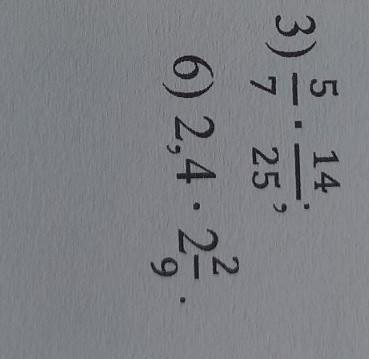 3) 5/7 · 14/25;
6) 2,4 · 2 2/9.